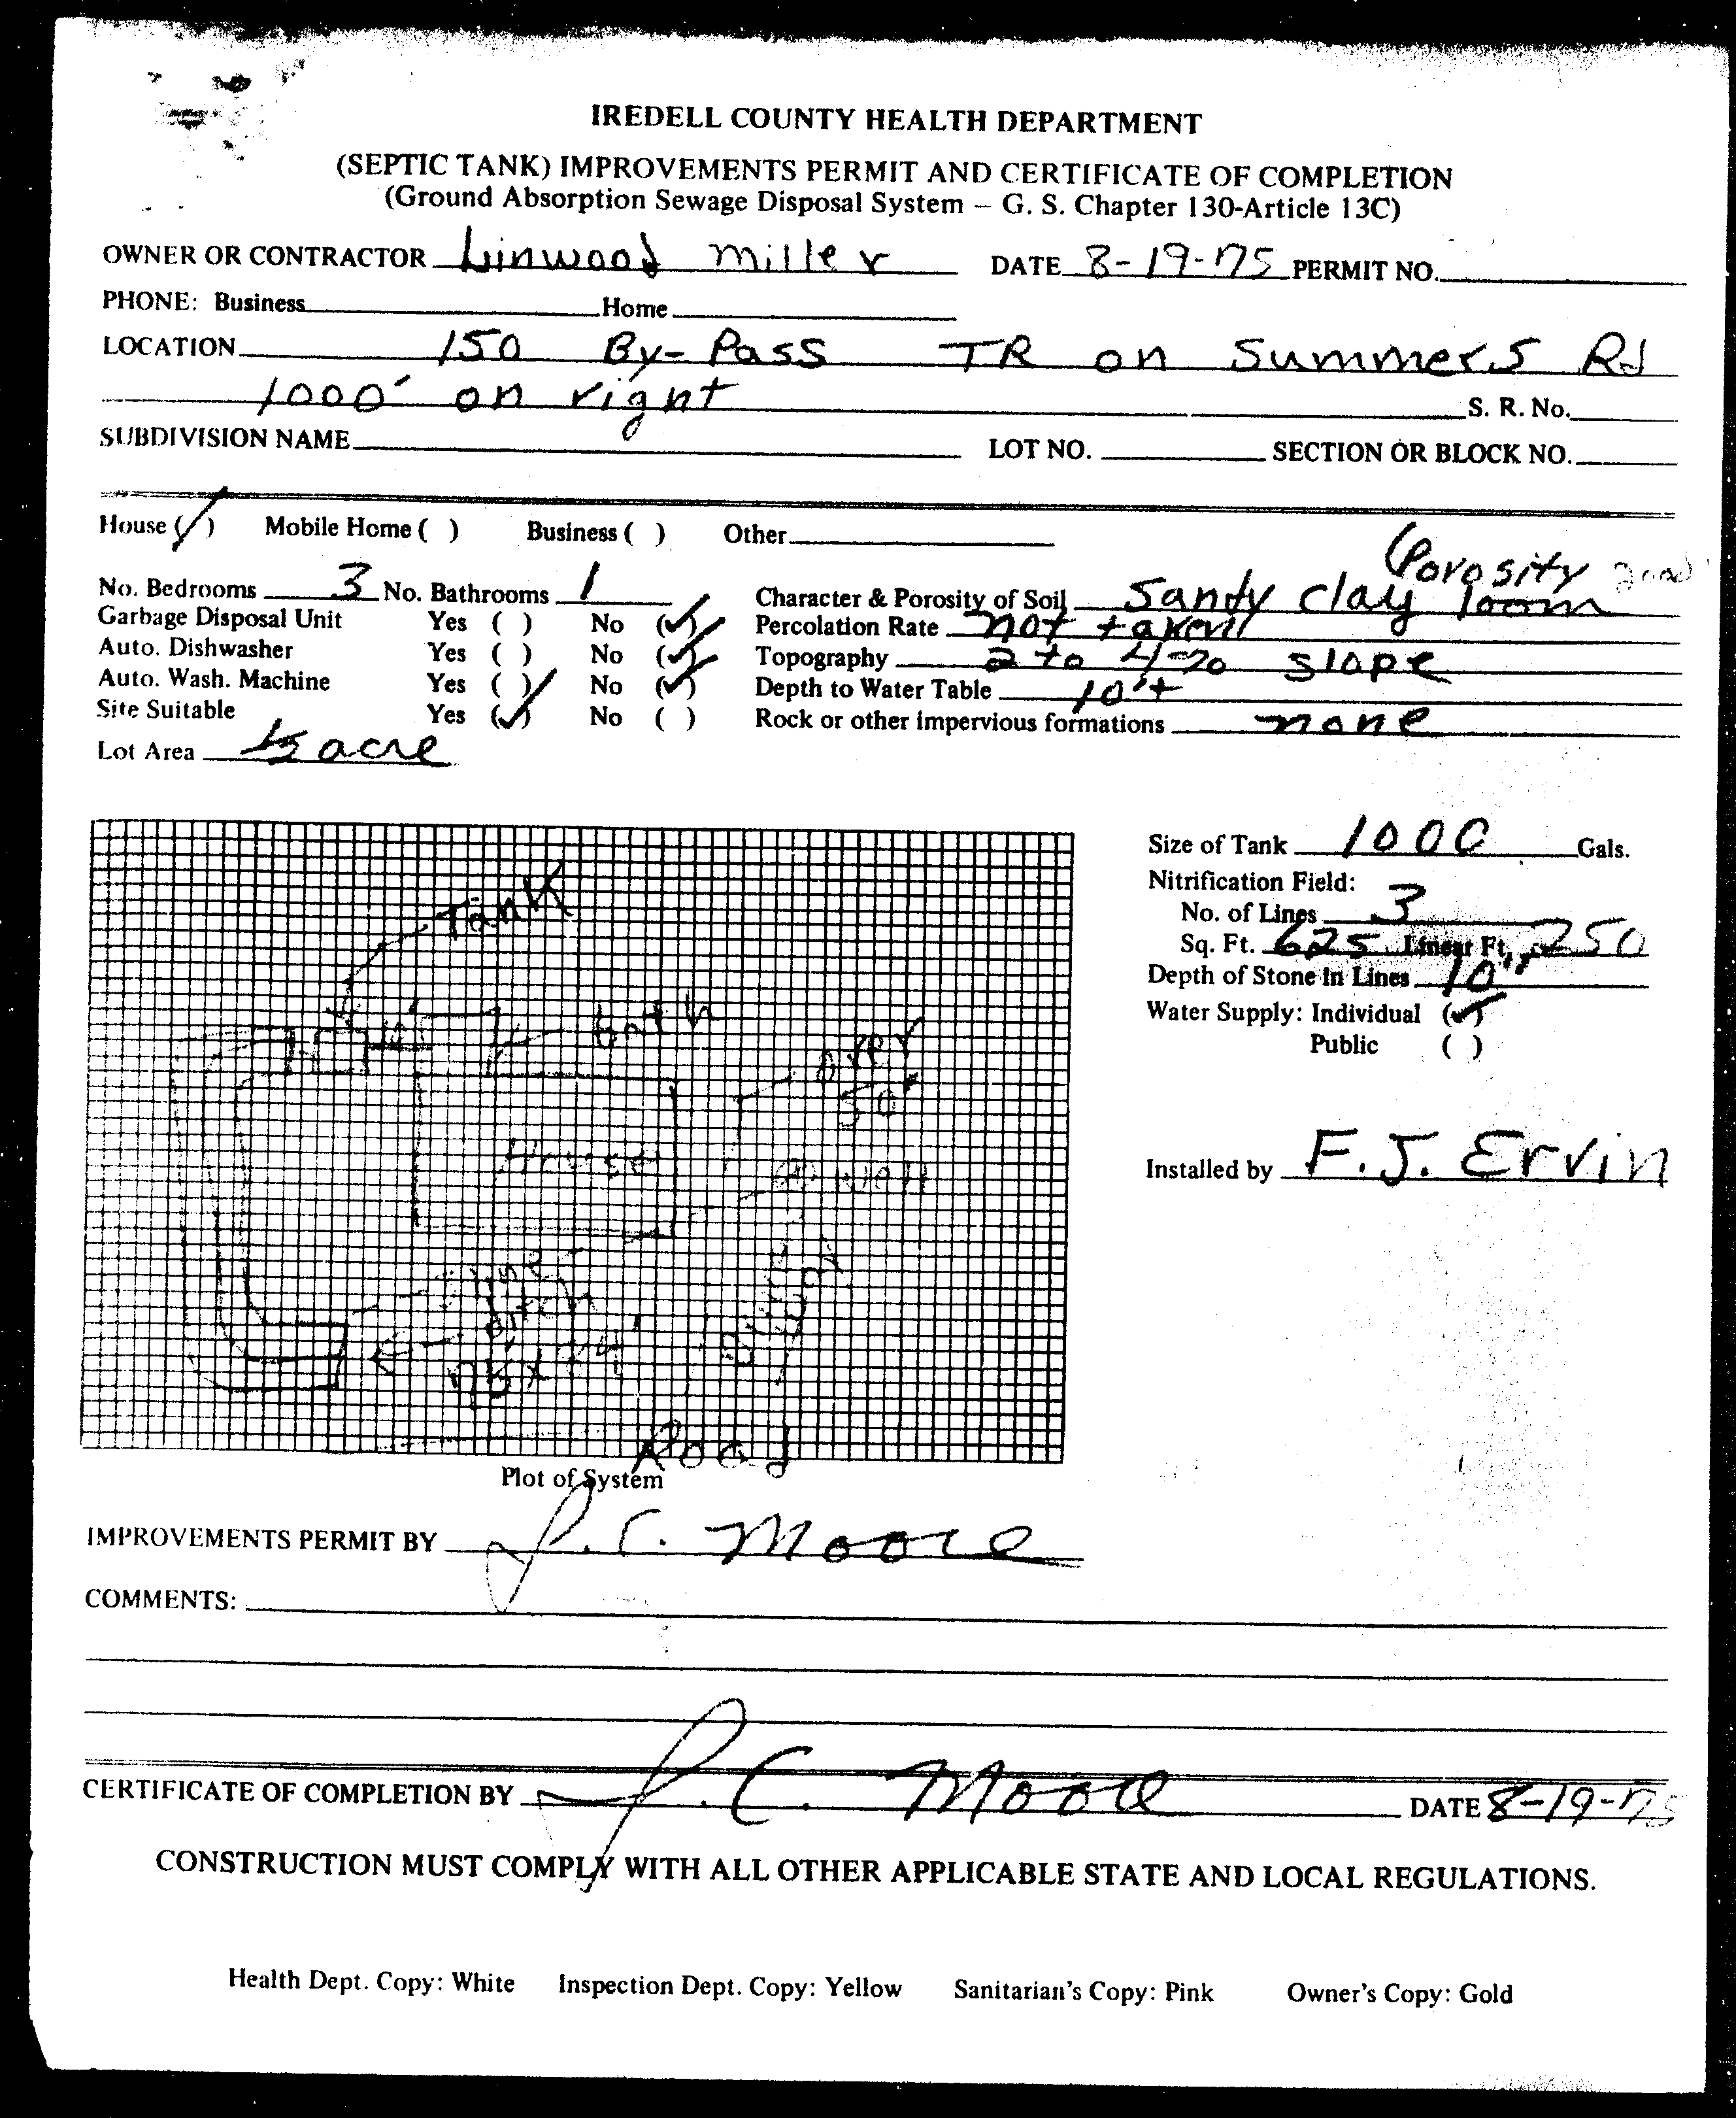 IREDELL COUNTY HEALTH DEPARTMENT
(SEPTIC TANK) IMPROVEMENTS PERMIT AND CERTIFICATE OF COMPLETION
(Ground Absorption Sewage Disposal System – G. S. Chapter 130-Article 13C)
OWNER OR CONTRACTOR Linwood Miller DATE 8-19-75 PERMIT NO.
PHONE: Business Home
LOCATION 150 By-Pass TR on Summers Rd
1000' on right S. R. No.
SUBDIVISION NAME LOT NO. SECTION OR BLOCK NO.
House (✓) Mobile Home ( ) Business ( ) Other
(Porosity good
No. Bedrooms 3 No. Bathrooms 1 Character & Porosity of Soil Sandy clay loom
Garbage Disposal Unit Yes ( ) No (✓) Percolation Rate not taken
Auto. Dishwasher Yes ( ) No (✓) Topography 2 to 4% slope
Auto. Wash. Machine Yes ( ) No (✓) Depth to Water Table 10'+
Site Suitable Yes (✓) No ( ) Rock or other impervious formations none
Lot Area ½ acre
Size of Tank 1000 Gals.
Nitrification Field:
No. of Lines 3
Sq. Ft. 625 Linear Ft. 250
Depth of Stone In Lines 10"
Water Supply: Individual (✓)
Public ( )
Installed by F. J. Ervin
Tank
bath
over
50'
House
well
ditch
Road
Plot of System
IMPROVEMENTS PERMIT BY J. C. Moore
COMMENTS:
CERTIFICATE OF COMPLETION BY J. C. Moore DATE 8-19-75
CONSTRUCTION MUST COMPLY WITH ALL OTHER APPLICABLE STATE AND LOCAL REGULATIONS.
Health Dept. Copy: White Inspection Dept. Copy: Yellow Sanitarian's Copy: Pink Owner's Copy: Gold